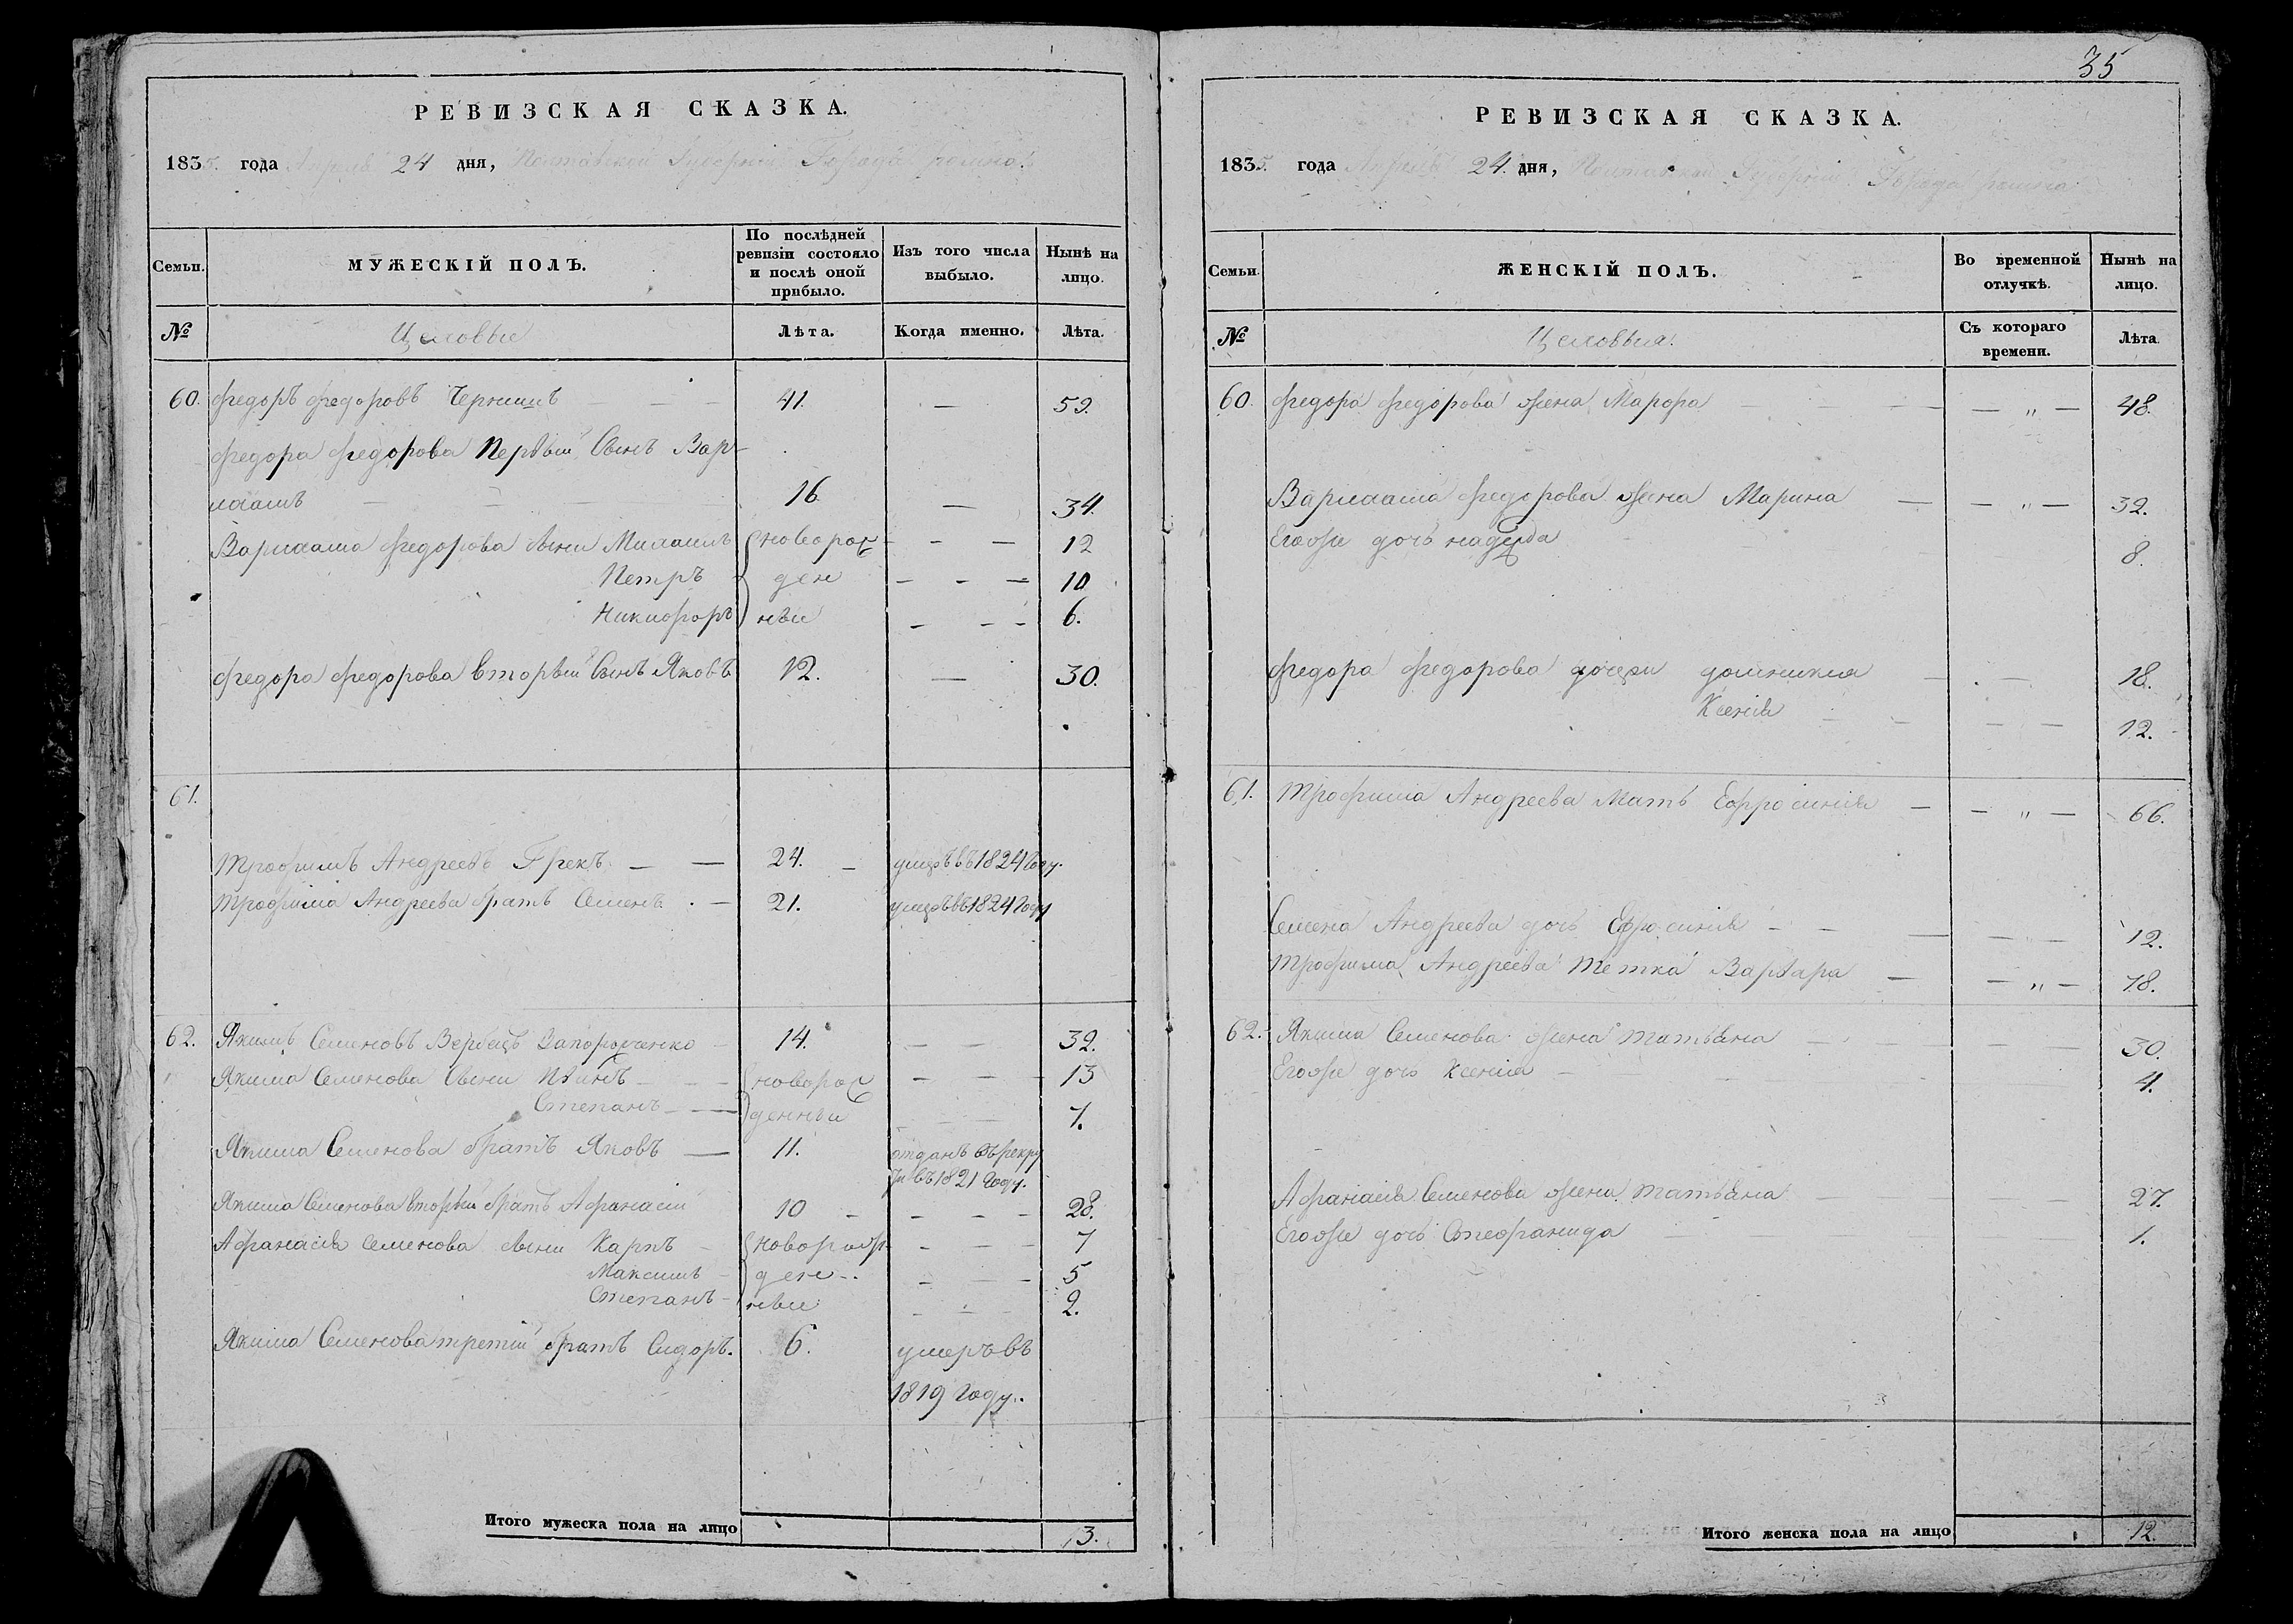 35
РЕВИЗСКАЯ СКАЗКА.
1835. года Апреля 24 дня, Полтавской Губернии Города Ромна.
Семьи.
МУЖЕСКІЙ ПОЛЪ.
По послѣдней ревизіи состояло и послѣ оной прибыло.
Изъ того числа выбыло.
Нынѣ на лицо.
№
Цеховые
Лѣта.
Когда именно.
Лѣта.
60. Федоръ Федоровъ Чернишъ — — — 41. — 59.
Федора Федорова Первый Сынъ Вар-
лаамъ — — — 16. — 34.
Варлаама Федорова сыни Михаилъ новорож — — 12
Петръ ден — - — 10
Никифоръ ныи — - - 6.
Федора Федорова вторый Сынъ Яковъ 12. — 30.
61.
Трофимъ Андреевъ Грекъ. — — 24. — умеръ въ 1824 году.
Трофима Андреева братъ Семенъ . — 21. умеръ въ 1824 году
62. Якимъ Семеновъ Вербецъ Запорожченко — 14. — — 32.
Якима Семенова сыни — — новорож — — 13
Степанъ — — денныи — — 7.
Якима Семенова братъ Яковъ — 11. отданъ въ рекру
ти въ 1821 году.
Якима Семенова вторый братъ Афанасій 10 — - - — 28.
Афанасія Семенова сыни Карпъ — новорож - — — 7
Максимъ — ден-. - — — 5
Степанъ — ныи - - - 2.
Якима Семенова третій братъ Сидоръ. 6. умеръ въ
1819 году.
Итого мужеска пола на лицо 13.
РЕВИЗСКАЯ СКАЗКА.
1835. года Апреля 24. дня, Полтавской Губерніи Города Ромна.
Семьи.
ЖЕНСКІЙ ПОЛЪ.
Во временной отлучкѣ.
Нынѣ на лицо.
№
Цеховыя.
Съ котораго времени.
Лѣта.
60. Федора Федорова жена Марфа — — — — „ — 48.
Варлаама Федорова жена Марина — — „ — 32.
Егоже дочь надежда 8.
Федора Федорова дочери домникия — . — 18.
Ксенія — — — — 12.
61. Трофима Андреева Мать Ефросинія — — „ — 66.
Семена Андреева дочь Ефросинія - - — — „ — 12.
Трофима Андреева тетка Варвара — — „ — 78.
62. Якима Семенова жена татьяна — — — — 30.
Егоже дочь Ксенія — 4.
Афанасія Семенова жена татьяна — — — 27.
Егоже дочь Стефанида — 1.
Итого женска пола на лицо 12.